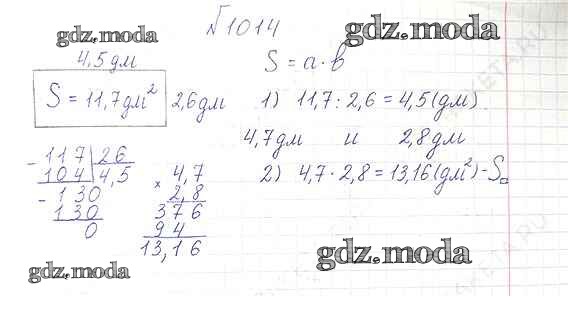 №1014
gdz.moda
gdz.moda
4,5дм
S = a · b
S = 11,7дм²
2,6дм
1) 11,7 : 2,6 = 4,5(дм)
4,7дм и 2,8дм
2) 4,7 · 2,8 = 13,16(дм²) - S
- 117 | 26
104 | 4,5
- 130
130
0
× 4,7
2,8
376
94
13,16
gdz.moda
gdz.moda